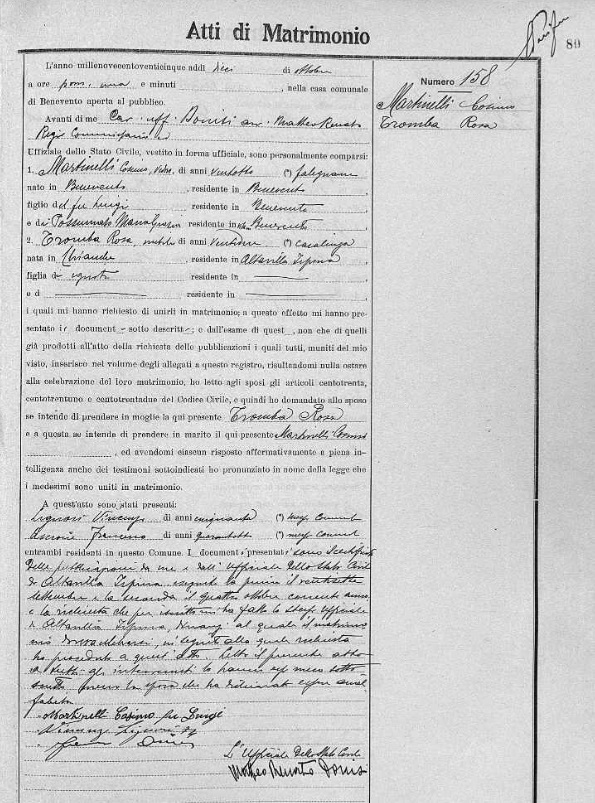 Atti di Matrimonio
80
Numero 158
Martinelli Cosimo
Tromba Rosa
L'anno millenovecentoventicinque addì dieci di ottobre
a ore pom. una e minuti , nella casa comunale
di Benevento aperta al pubblico.
Avanti di me Cav. uff. Matteo Renato
Regio Commissario
Uffiziale dello Stato Civile, vestito in forma ufficiale, sono personalmente comparsi:
1. Martinelli Cosimo, di anni ventotto (*) falegname
nato in Benevento residente in Benevento
figlio del fu Luigi residente in Benevento
e di Possumato Maria residente in Benevento
2. Tromba Rosa, nubile di anni (*) casalinga
nata in residente in Altavilla Irpina
figlia di ignoti residente in
e di residente in
i quali mi hanno richiesto di unirli in matrimonio; a questo effetto mi hanno pre-
sentato i document sotto descritti; e dall'esame di quest , non che di quelli
già prodotti all'atto della richiesta delle pubblicazioni i quali tutti, muniti del mio
visto, inserisco nel volume degli allegati a questo registro, risultandomi nulla ostare
alla celebrazione del loro matrimonio, ho letto agli sposi gli articoli centotrenta,
centotrentuno e centotrentadue del Codice Civile, e quindi ho domandato allo sposo
se intende di prendere in moglie la qui presente Tromba Rosa
e a questa se intende di prendere in marito il qui presente Martinelli Cosimo
, ed avendomi ciascun risposto affermativamente a piena in-
telligenza anche dei testimoni sottoindicati ho pronunziato in nome della legge che
i medesimi sono uniti in matrimonio.
A quest'atto sono stati presenti:
Liguori Vincenzo di anni cinquanta (*) messo Comunale
Francesco di anni quarantotto (*) messo Comunale
entrambi residenti in questo Comune. I documenti presentati sono i certificati
delle pubblicazioni da me e dall'Uffiziale dello Stato Civile
di Altavilla Irpina eseguite la prima il ventisette
settembre e la seconda il quattro ottobre corrente anno,
e la richiesta che per iscritto mi ha fatto lo stesso Uffiziale
di Altavilla Irpina, dinanzi al quale il matrimo-
nio doveva celebrarsi, in seguito alla quale richiesta
ho proceduto a quest'atto. Letto il presente atto
a tutti gli intervenuti lo hanno essi meco sotto-
scritto meno la sposa che ha dichiarato essere anal-
fabeta.
Martinelli Cosimo fu Luigi
Vincenzo Liguori
L'Uffiziale dello Stato Civile
Matteo Renato